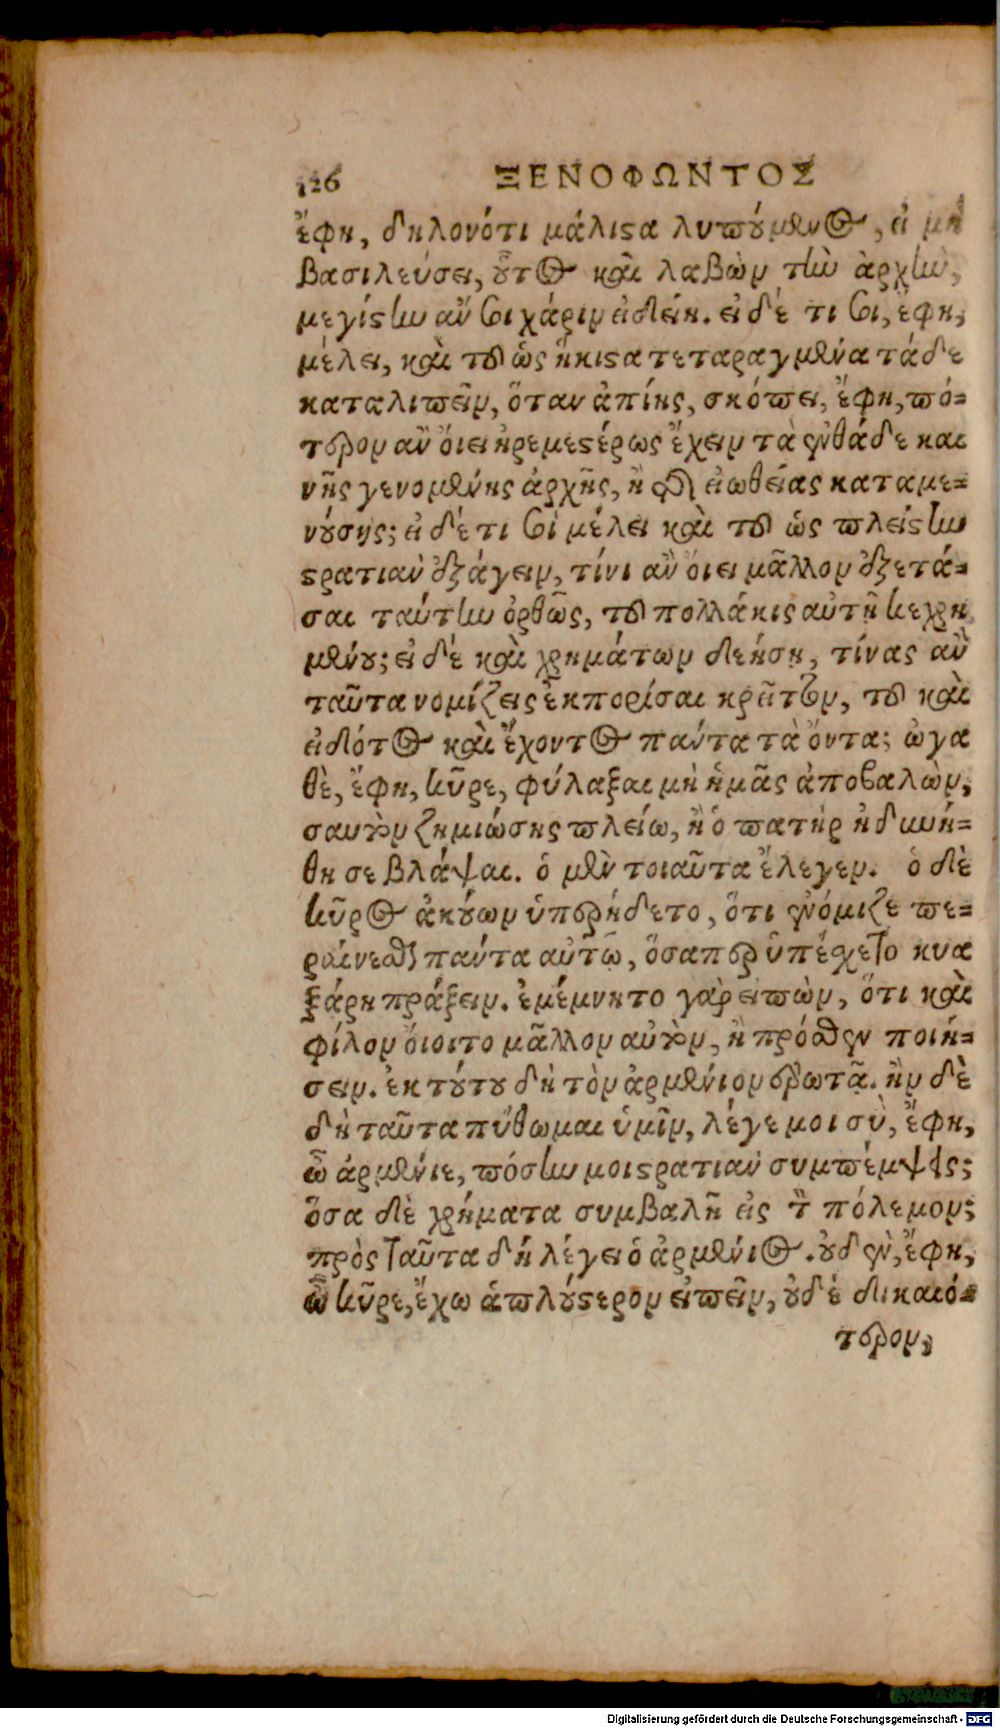 126 ΞΕΝΟΦΩΝΤΟΣ
ἔφη, δηλονότι μάλιστα λυπούμενος, εἰ μὴ
βασιλεύσει, οὗτος καὶ λαβὼν τὴν ἀρχὴν,
μεγίστην ἄν σοι χάριν εἰδείη. εἰ δέ τι σοι, ἔφη,
μέλει, καὶ τοῦ ὡς ἥκιστα τεταραγμένα τάδε
καταλιπεῖν, ὅταν ἀπίῃς, σκόπει, ἔφη, πό-
τερον ἂν οἴει ἠρεμεστέρως ἔχειν τὰ ἐνθάδε και
νῆς γενομένης ἀρχῆς, ἢ τῆς εἰωθείας καταμε-
νούσης; εἰ δέ τι σοὶ μέλει καὶ τοῦ ὡς πλείστην
στρατιὰν ἐξάγειν, τίνι ἂν οἴει μᾶλλον ἐξετά-
σαι ταύτην ὀρθῶς, τοῦ πολλάκις αὐτῇ κεχρη
μένου; εἰ δέ καὶ χρημάτων δεήσῃ, τίνας ἂν
ταῦτα νομίζεις ἐκπορίσαι κρεῖττον, τοῦ καὶ
εἰδότος καὶ ἔχοντος παντα τὰ ὄντα; ὠγα
θὲ, ἔφη, κῦρε, φύλαξαι μὴ ἡμᾶς ἀποβαλὼν,
σαυτὸν ζημιώσῃς πλείω, ἢ ὁ πατὴρ ἠδυνή-
θη σε βλάψαι. ὁ μὲν τοιαῦτα ἔλεγεν. ὁ δὲ
κῦρος ἀκούων ὑπερήδετο, ὅτι ἐνόμιζε πε-
ραίνεσθαι παντα αὐτῷ, ὅσαπερ ὑπέσχετο κυα
ξάρῃ πράξειν. ἐμέμνητο γὰρ εἰπὼν, ὅτι καὶ
φίλον οἴοιτο μᾶλλον αὐτὸν, ἢ πρόσθεν ποιή-
σειν. ἐκ τούτου δὴ τὸν ἀρμένιον ἐρωτᾷ. ἢν δὲ
δὴ ταῦτα πύθωμαι ὑμῖν, λέγε μοι σὺ, ἔφη,
ὦ ἀρμένιε, πόσην μοι στρατιὰν συμπέμψεις;
ὅσα δὲ χρήματα συμβαλῇ εἰς τὸν πόλεμον;
πρὸς ταῦτα δὴ λέγει ὁ ἀρμένιος. οὐδὲν, ἔφη,
ὦ κῦρε, ἔχω ἁπλούστερον εἰπεῖν, οὐδὲ δικαιό-
τερον,
Digitalisierung gefördert durch die Deutsche Forschungsgemeinschaft - DFG